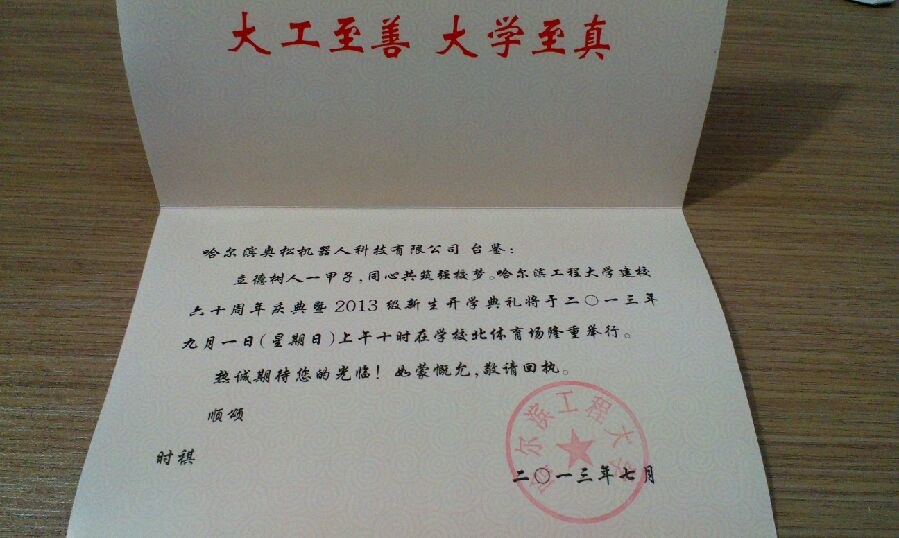 大工至善 大学至真
哈尔滨奥松机器人科技有限公司 台鉴：
立德树人一甲子，同心共筑强校梦。哈尔滨工程大学建校
六十周年庆典暨2013级新生开学典礼将于二〇一三年
九月一日(星期日)上午十时在学校北体育场隆重举行。
热诚期待您的光临！如蒙慨允，敬请回执。
顺颂
时祺
哈尔滨工程大学
二〇一三年七月